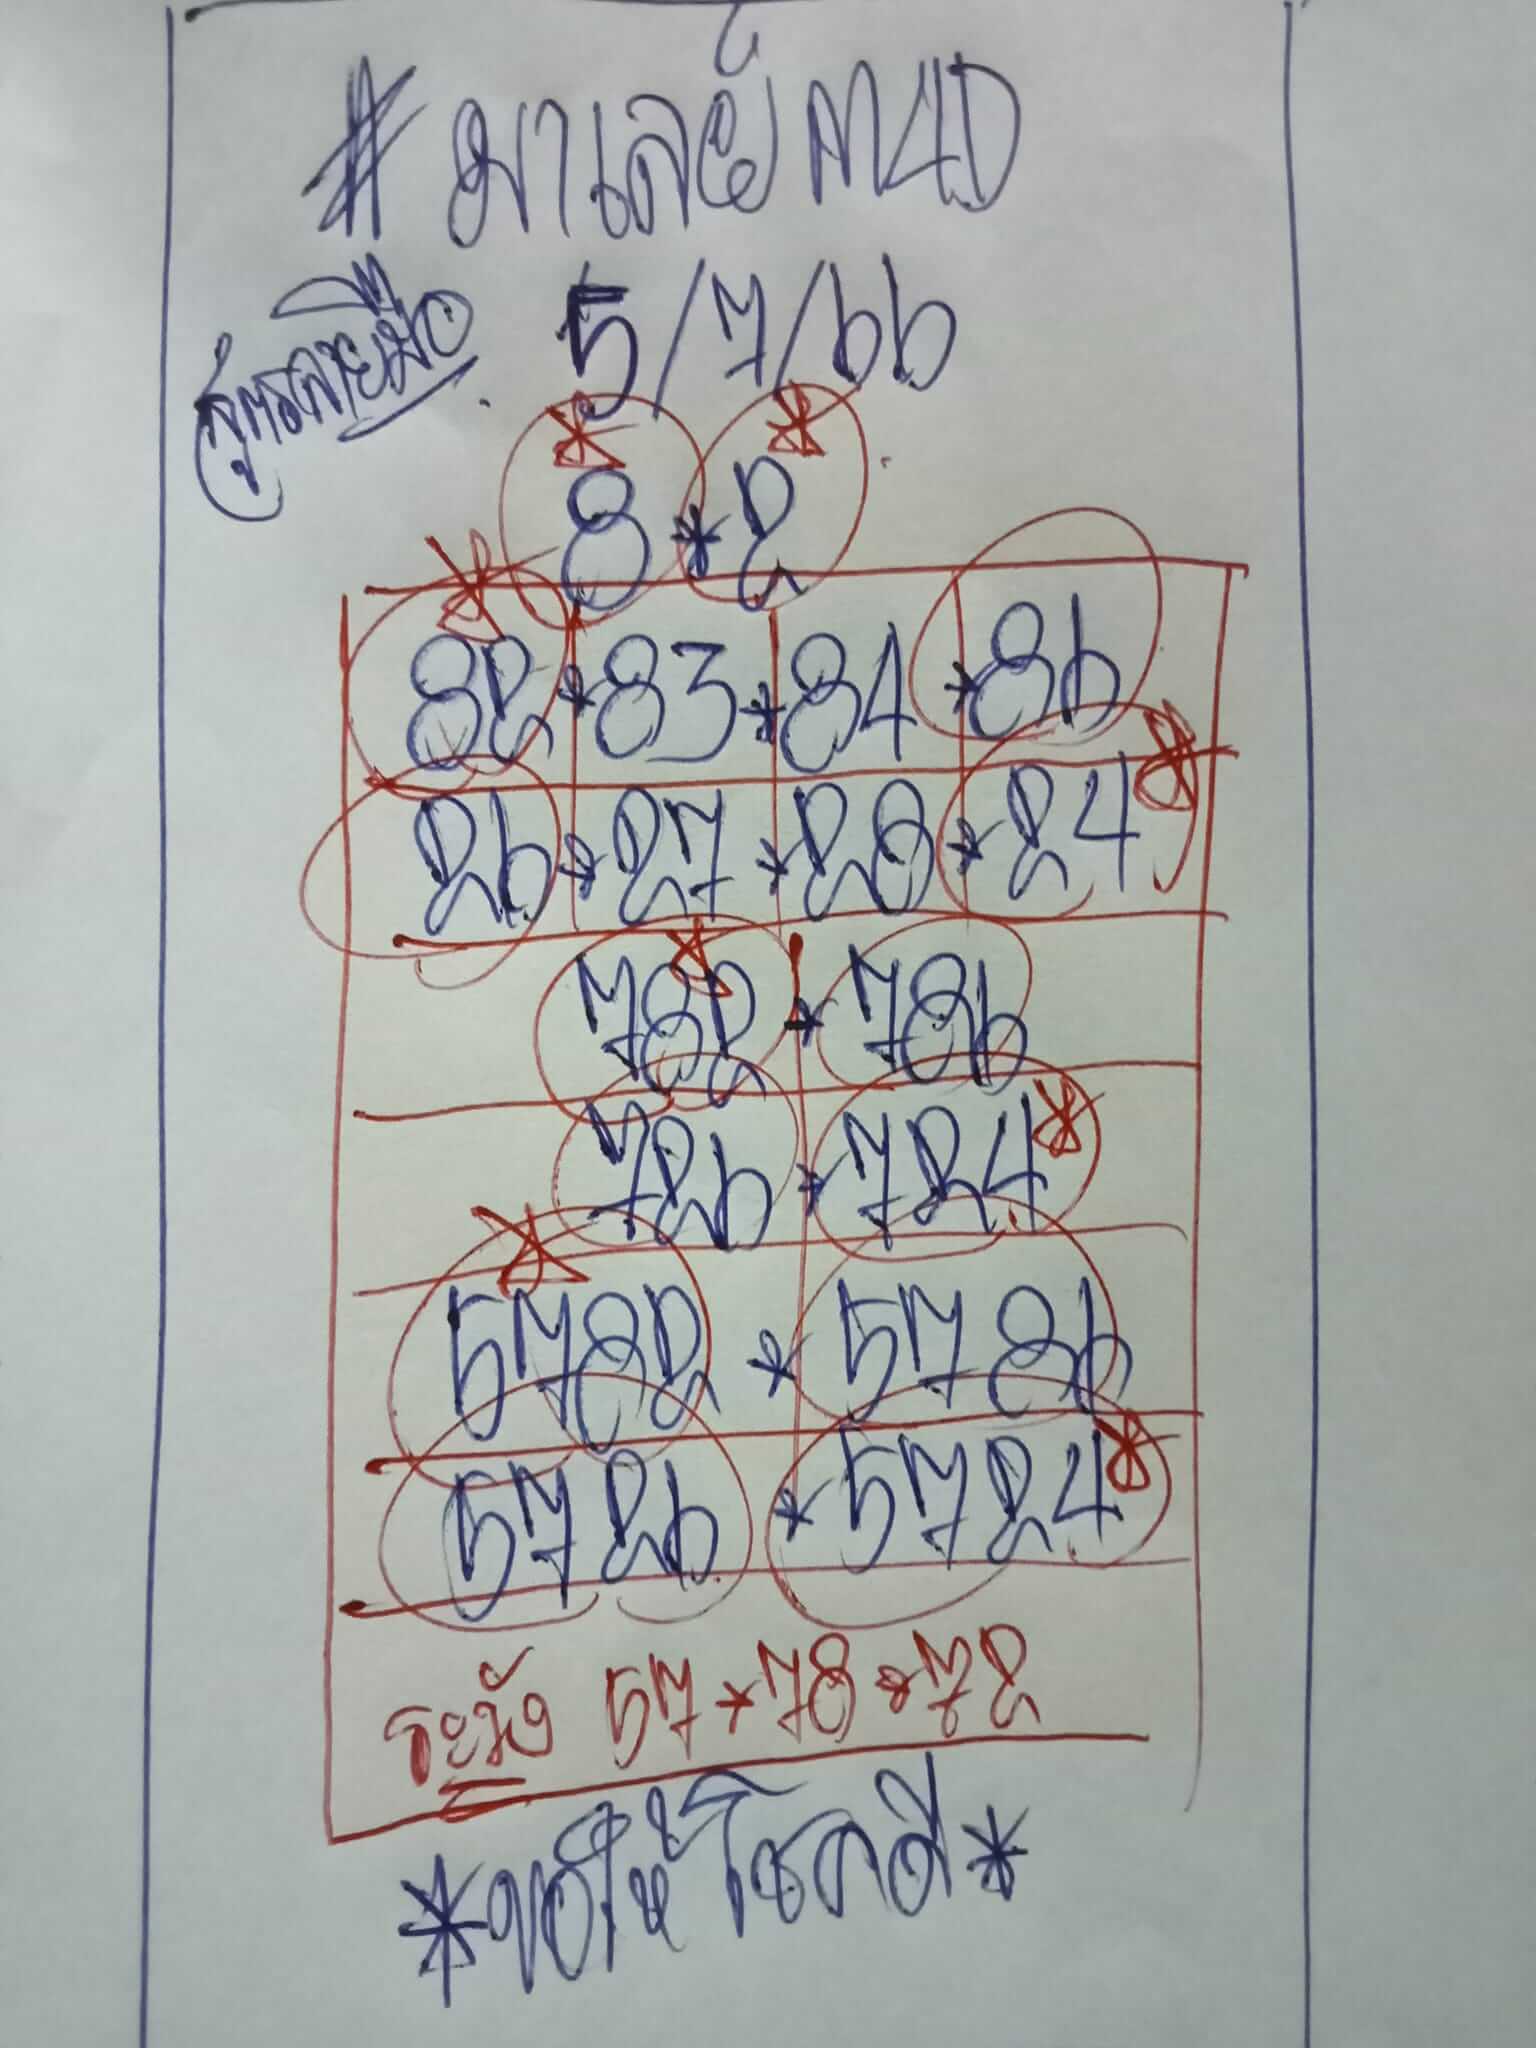 #มาเลย์ M4D
สูตรลายมือ 5/7/66
8*2
82*83*84*86
26*27*28*24
782*786
726*724
5782*5786
5726*5724
ระวัง 57*78*72
*ขอให้โชคดี*